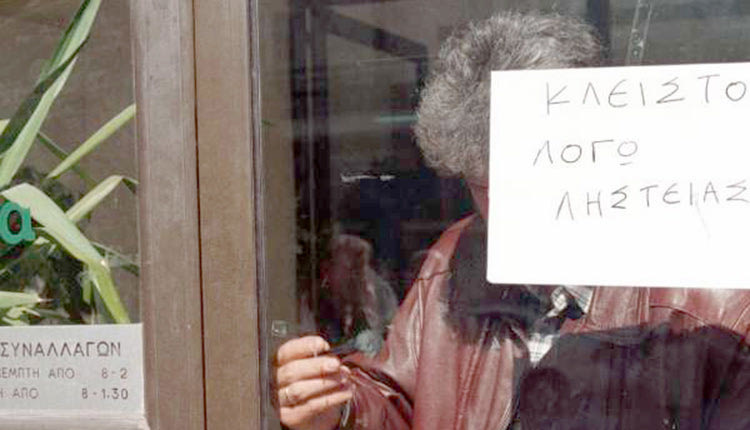 ΚΛΕΙΣΤΟ
ΛΟΓΩ
ΛΗΣΤΕΙΑΣ
α
ΣΥΝΑΛΛΑΓΩΝ
ΕΜΠΤΗ ΑΠΟ 8-2
Η ΑΠΟ 8-1.30